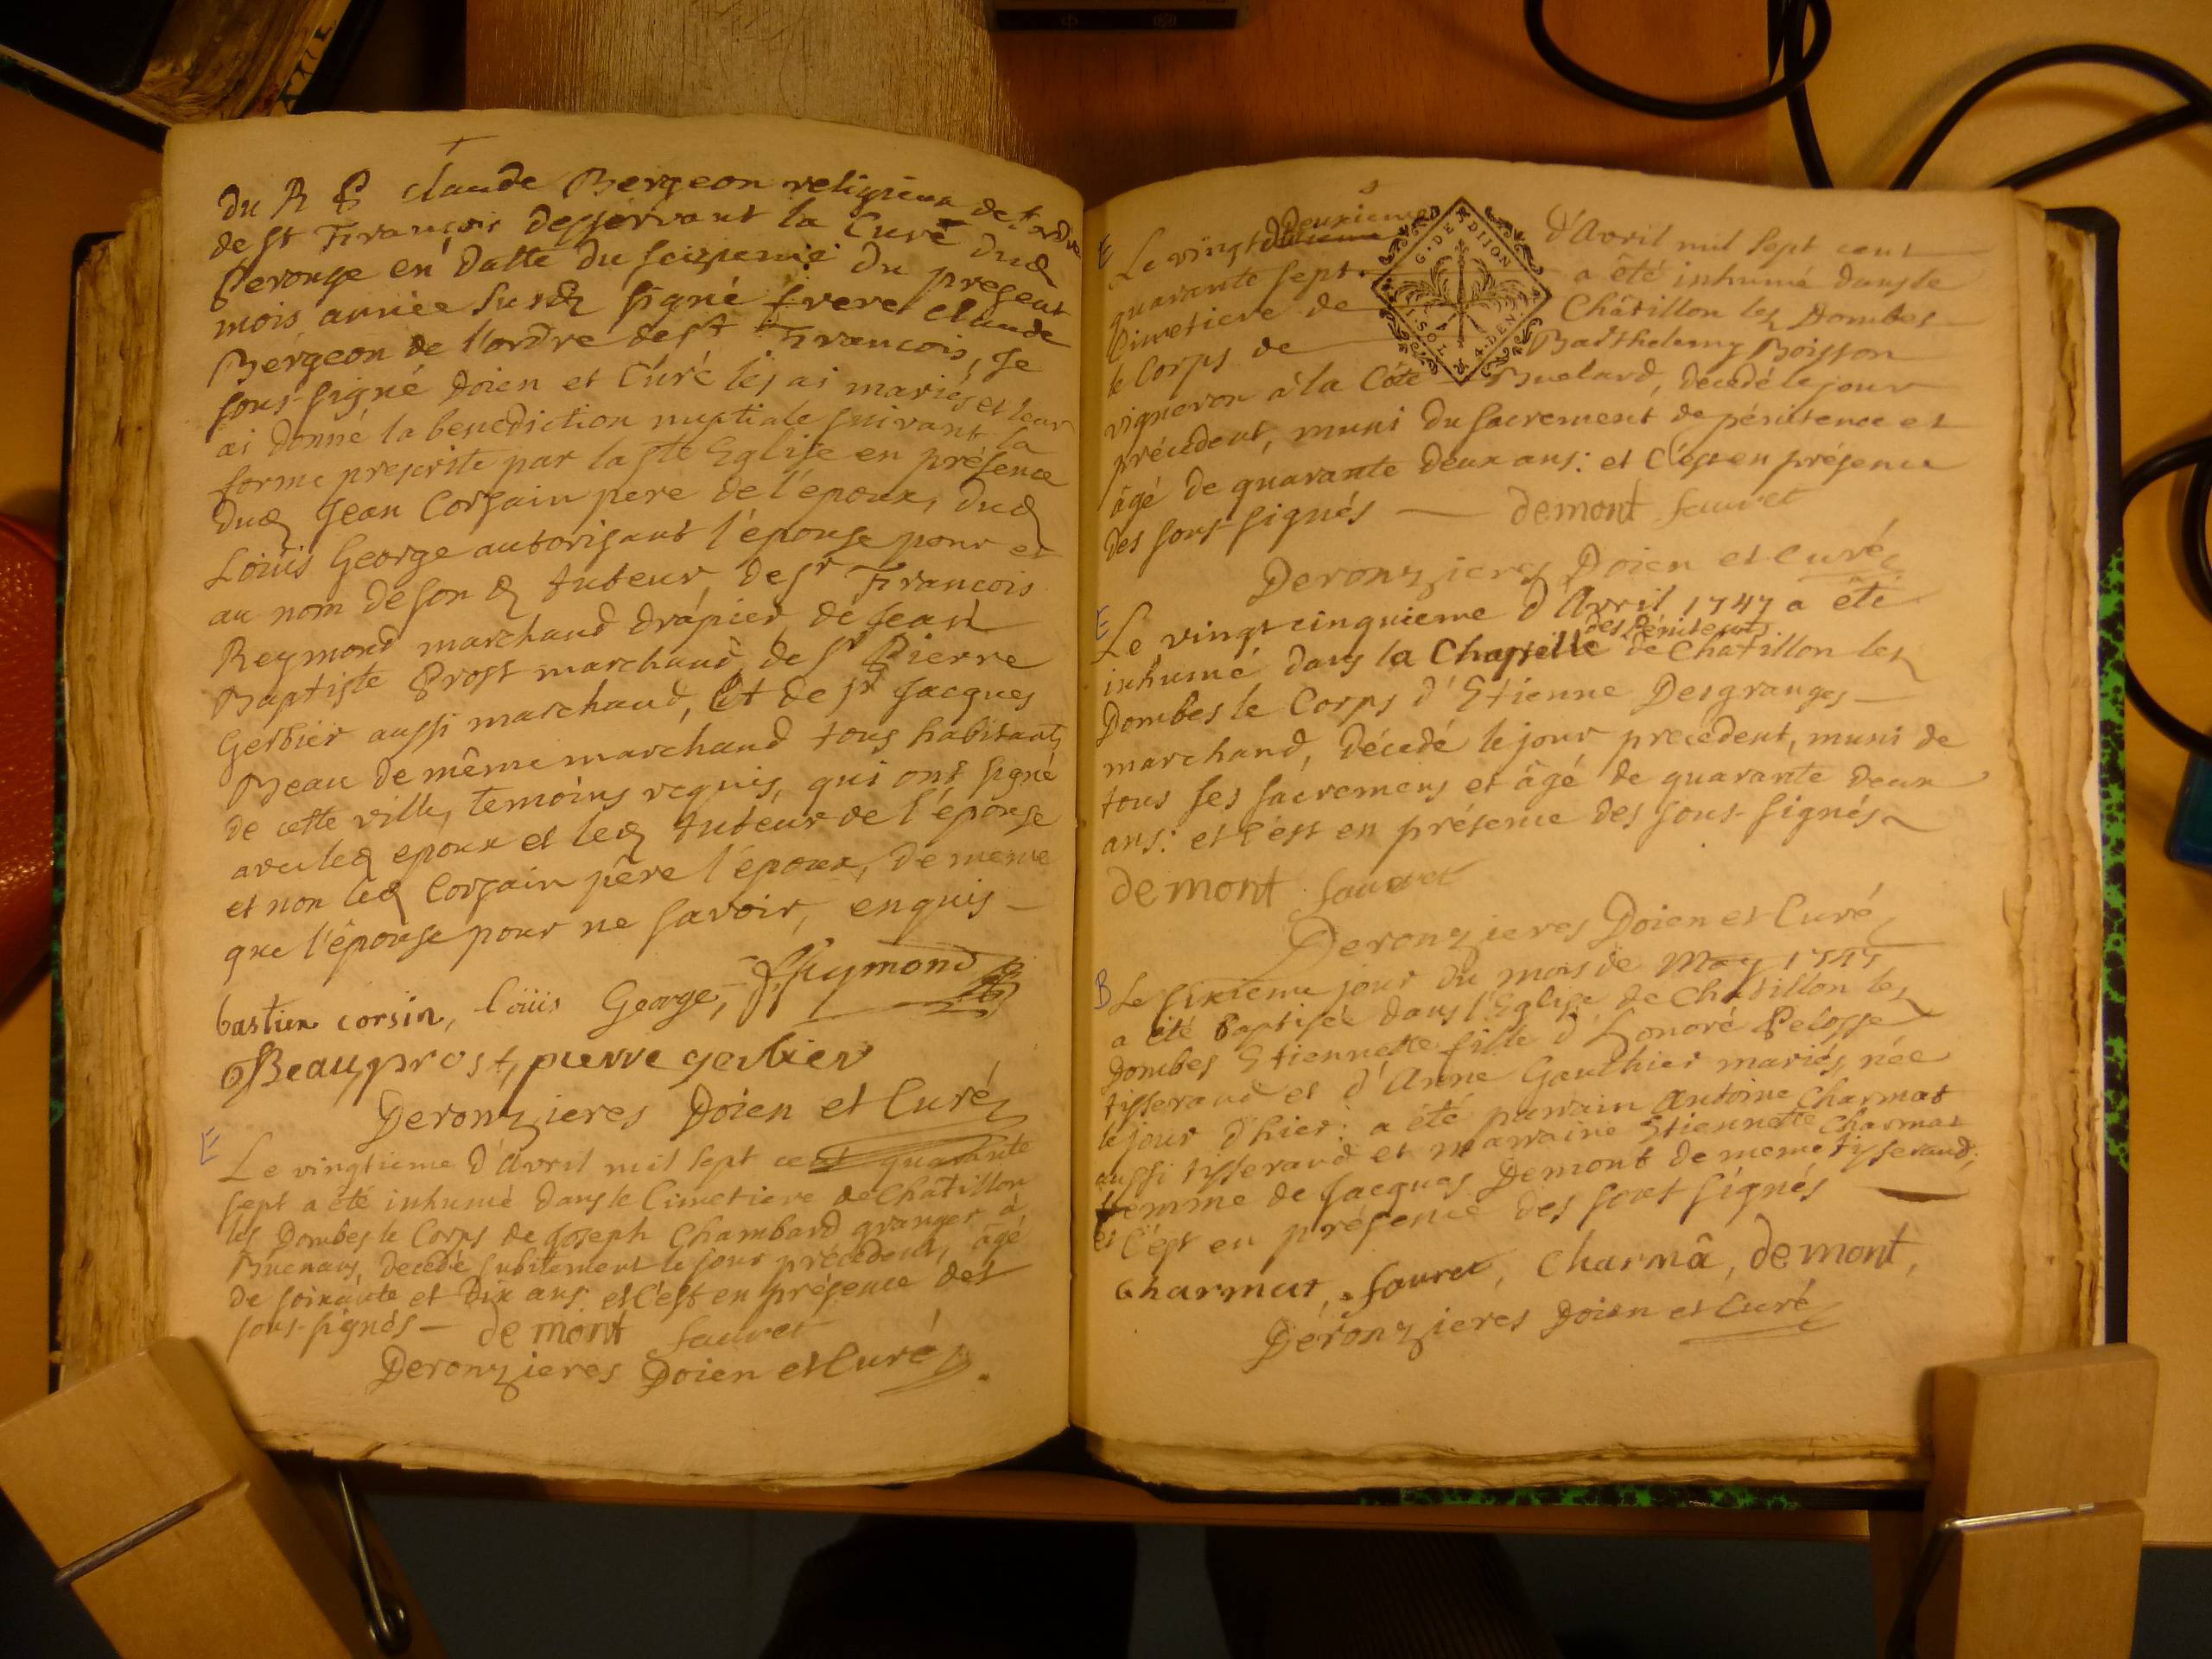 du R P claude Bergeon religieux de l'ordre
de st François desservant la Cure dud
Perouge en datte du seizieme du present
mois année susd signé frere Claude
Bergeon de l'ordre de st François, Je
sous-signé Doien et Curé les ai mariés et leur
ai donné la benediction nuptiale suivant la
forme prescrite par la ste Eglise en présence
dud Jean Corsain pere de l'epoux, dud
Louis George autorisant l'épouse pour et
au nom de son d tuteur, de sr François
Reymond marchand drapier, de Jean
Baptiste Prost marchand, de sr Pierre
Gerbier aussi marchand, Et de sr Jacques
Beau de même marchand tous habitants
de cette ville, temoins requis, qui ont signé
avec led epoux et led tuteur de l'épouse
et non led Corsain père l'époux, de meme
que l'épouse pour ne savoir, enquis
bastien corsin, loüis George, Reymond
Beau, prost, pierre gerbier
Deronzieres Doien et Curé
E
Le vingtieme d'Avril mil sept cent quarante
sept a été inhumé dans le Cimetiere de Châtillon
les Dombes le Corps de Joseph Chambard granger à
Buenans, decedé subitement le jour précédent, âgé
de soixante et dix ans: et c'est en présence des
sous-signés — demont sauret
Deronzieres Doien et Curé
E Le vingt deuxieme d'Avril mil sept cent
quarante sept a été inhumé dans le
Cimetiere de Châtillon les Dombes
le Corps de Barthelemy Boisson
G. DE DIJON
1. SOL 4. DEN.
vigneron à la Côte Buelard, décedé le jour
précédent, muni du sacrement de pénitence et
âgé de quarante deux ans: et c'est en présence
des sous-signés — demont sauret
Deronzieres Doien et Curé
E
Le vingt cinquieme d'Avril 1747 a été
des Pénitents
inhumé dans la Chapelle de Châtillon les
Dombes le Corps d'Etienne Desgranges
marchand, décedé le jour precedent, muni de
tous ses sacremens et âgé de quarante deux
ans: et c'est en présence des sous-signés
demont sauret
Deronzieres Doien et Curé
B Le sixieme jour du mois de May 1747
a été Baptisée dans l'Eglise de Châtillon les
Dombes Etiennette fille d'Honoré Pelosse
tisserand et d'Anne Gauthier mariés, née
le jour d'hier: a été parrain Antoine Charmat
aussi tisserand et marraine Etiennette Charmat
femme de Jacques Demont de meme tisserand;
et c'est en présence des sous signés
charmat, sauret, Charmâ, demont,
Deronzieres Doien et Curé